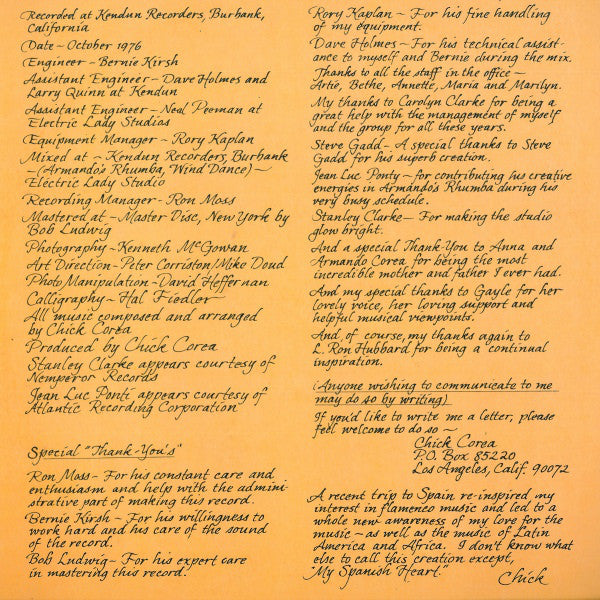 Recorded at Kendun Recorders, Burbank,
California
Date ~ October 1976
Engineer ~ Bernie Kirsh
Assistant Engineer ~ Dave Holmes and
Larry Quinn at Kendun
Assistant Engineer ~ Neal Peeman at
Electric Lady Studios
Equipment Manager ~ Rory Kaplan
Mixed at ~ Kendun Recorders, Burbank
~(Armando's Rhumba, Wind Dance)~
Electric Lady Studio
Recording Manager - Ron Moss
Mastered at ~ Master Disc, New York by
Bob Ludwig
Photography ~ Kenneth McGowan
Art Direction - Peter Corriston/Mike Doud
Photo Manipulation - David Heffernan
Calligraphy ~ Hal Fiedler
All music composed and arranged
by Chick Corea
Produced by Chick Corea
Stanley Clarke appears courtesy of
Nemperor Records
Jean Luc Ponti appears courtesy of
Atlantic Recording Corporation
Special "Thank-You's"
Ron Moss - For his constant care and
enthusiasm and help with the admini-
strative part of making this record.
Bernie Kirsh ~ For his willingness to
work hard and his care of the sound
of the record.
Bob Ludwig ~ For his expert care
in mastering this record.
Rory Kaplan ~ For his fine handling
of my equipment.
Dave Holmes - For his technical assist-
ance to myself and Bernie during the mix.
Thanks to all the staff in the office ~
Artie, Bethe, Annette, Maria and Marilyn.
My thanks to Carolyn Clarke for being a
great help with the management of myself
and the group for all these years.
Steve Gadd - A special thanks to Steve
Gadd for his superb creation.
Jean Luc Ponty ~ for contributing his creative
energies in Armando's Rhumba during his
very busy schedule.
Stanley Clarke - For making the studio
glow bright.
And a special Thank-You to Anna and
Armando Corea for being the most
incredible mother and father I ever had.
And my special thanks to Gayle for her
lovely voice, her loving support and
helpful musical viewpoints.
And, of course, my thanks again to
L. Ron Hubbard for being a continual
inspiration.
(Anyone wishing to communicate to me
may do so by writing)
If you'd like to write me a letter, please
feel welcome to do so ~
Chick Corea
P.O. Box 85220
Los Angeles, Calif. 90072
A recent trip to Spain re-inspired my
interest in flamenco music and led to a
whole new awareness of my love for the
music - as well as the music of Latin
America and Africa. I don't know what
else to call this creation except,
"My Spanish Heart."
Chick